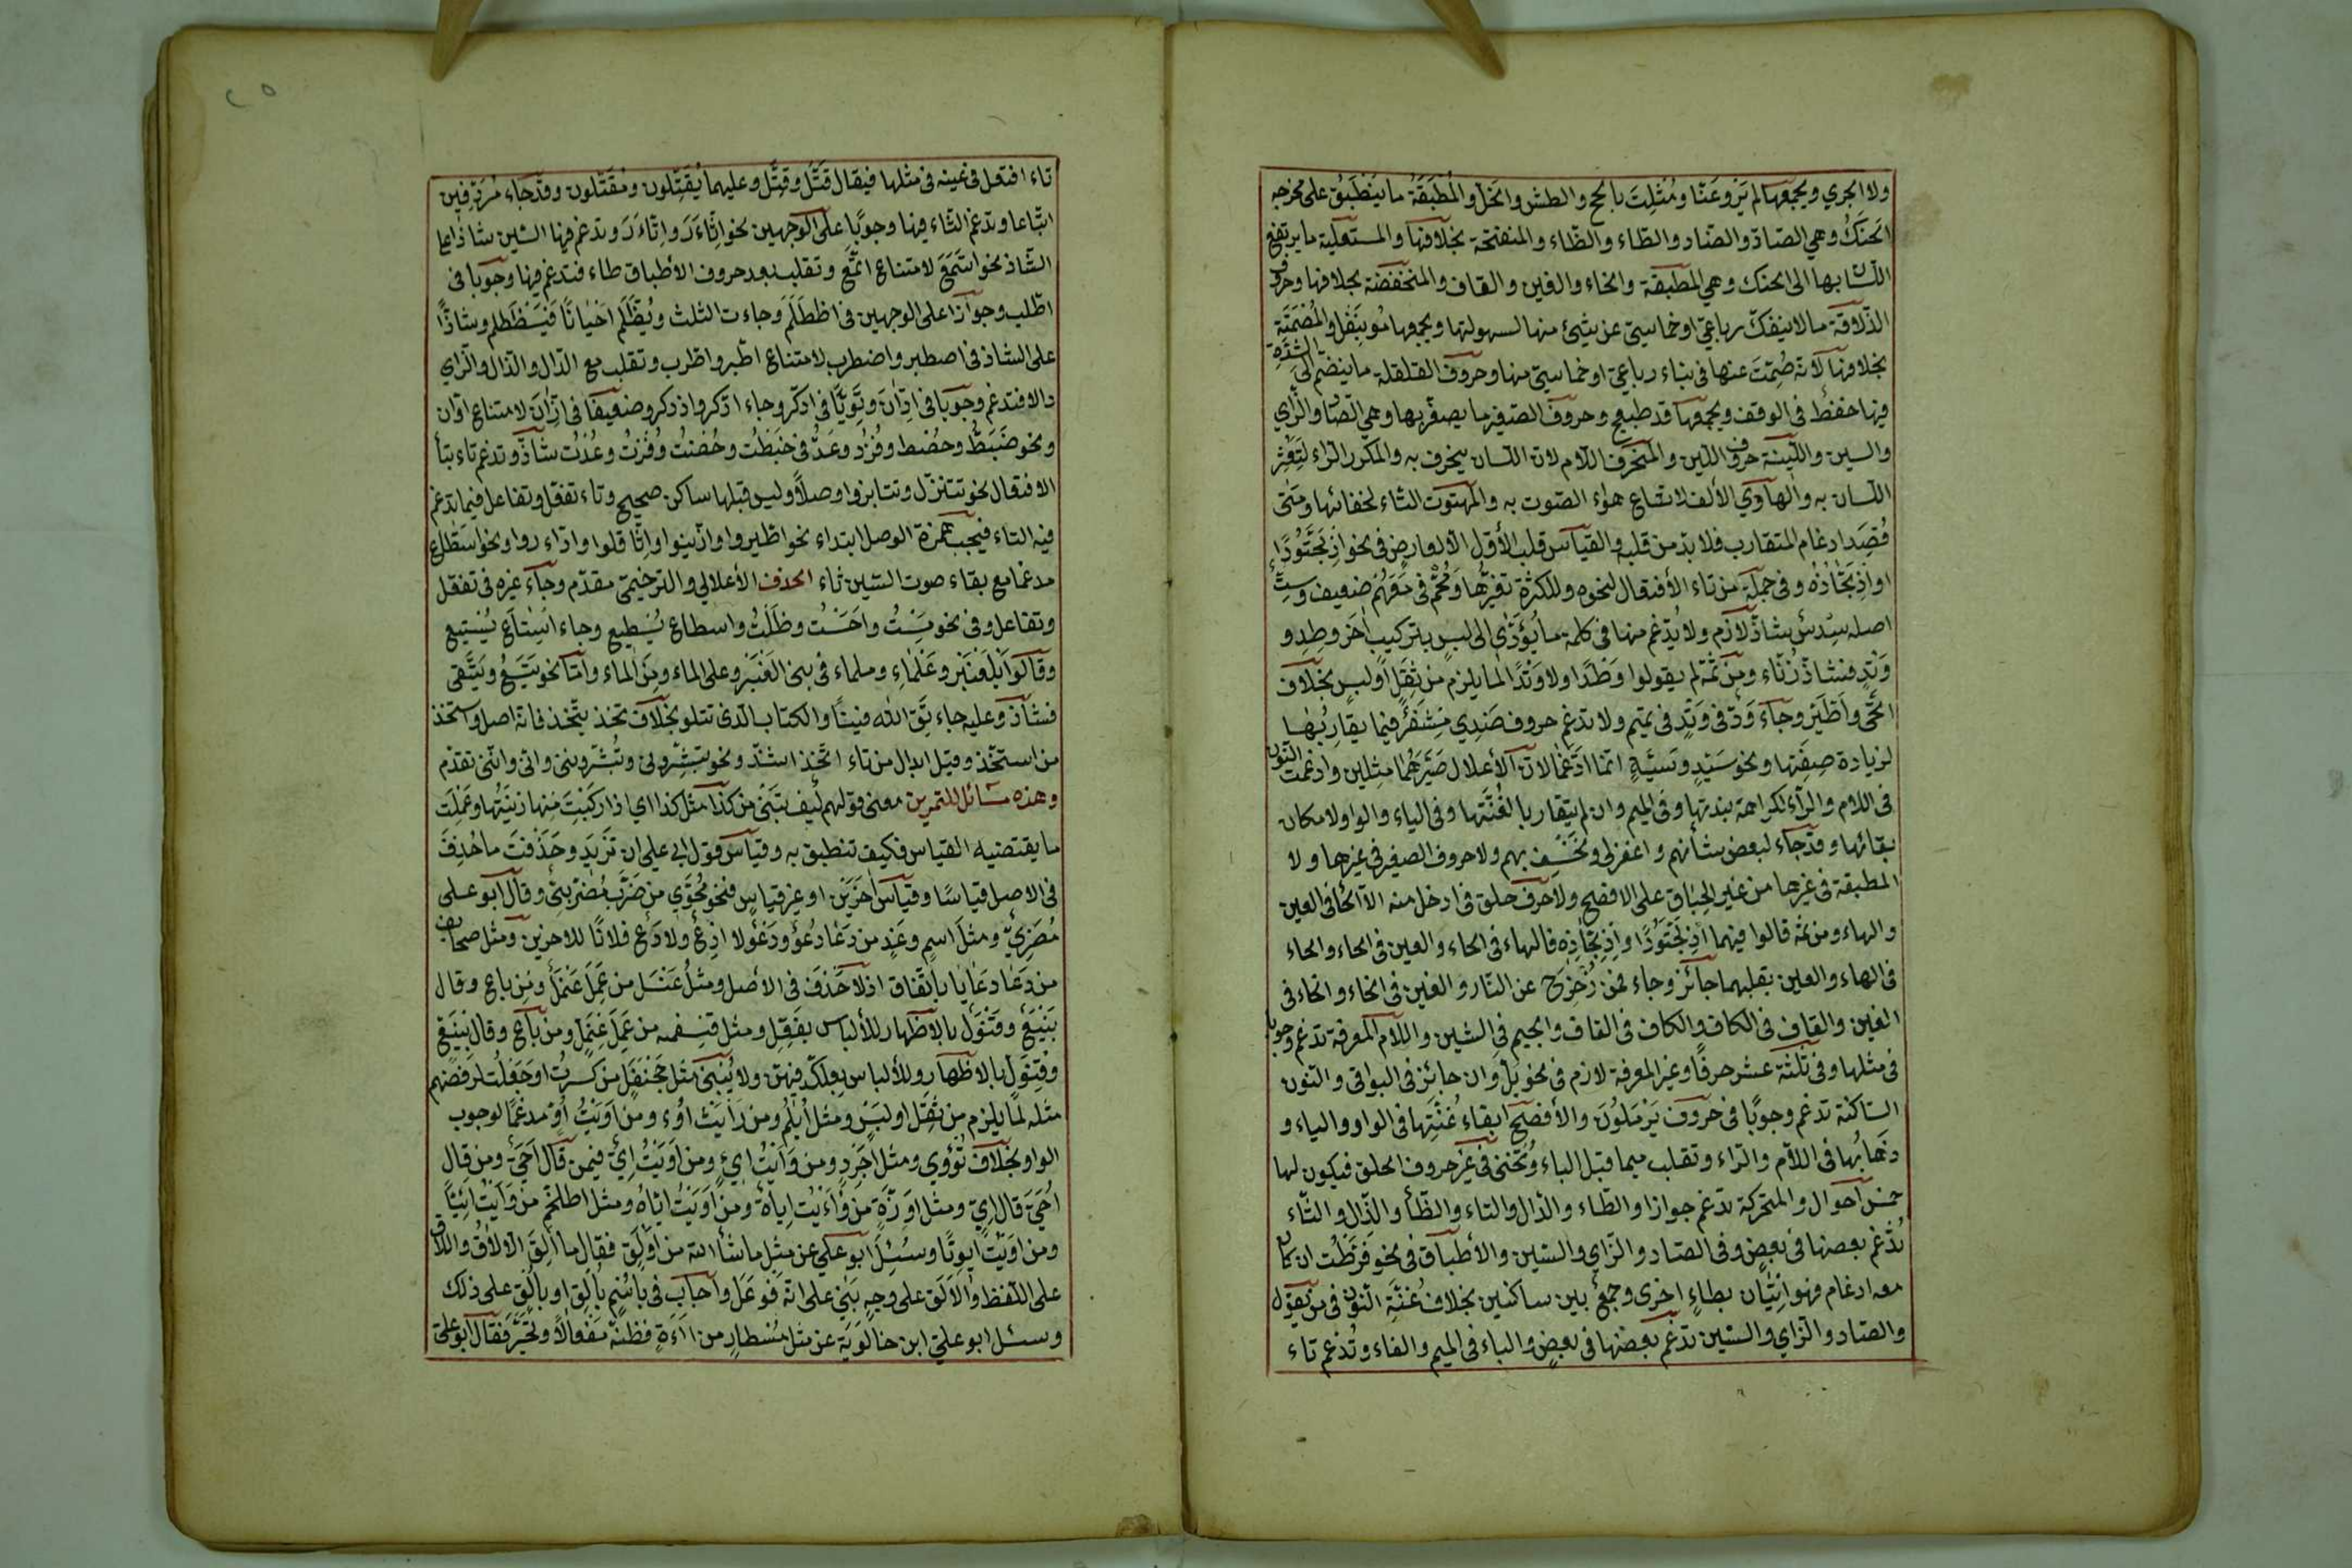 ولا الجري ويجمعها لم يَرْوِعَنّا ومُثّلِتَ بالحج والطش والخل والمُطبَقَةُ ما ينطبق على مخرجه
الحَنَكُ وهي الصاد والضاد والطاء والظاء والمنفتحة بخلافها والمستعلية ما يرتفع
اللسان بها الى الحنك وهي المطبقة والخاء والغين والقاف والمنخفضة بخلافها وحروف
الذلاقة ما لا ينفكّ رباعيّ او خماسيّ عن شيئ منها لسهولتها ويجمعها مُر بنَفلٍ والمُصْمَتَة
بخلافها لانه صُمِتَ عنها في بناء رباعيّ او خماسيّ منها وحروف القلقلة ما ينضم الى الشدّة
فيها ضغط في الوقف ويجمعها قد طبج وحروف الصفير ما يصفر بها وهي الصاد والزاي
والسين واللّيّنة حروف اللين والمنحرف اللام لان اللسان ينحرف به والمكرر الراء لتعثر
اللسان به والهاوي الألف لاتساع هواء الصوت به والمهتوت التاء لخفائها ومتى
قُصِدَ ادغام المتقارب فلا بدّ من قلبه والقياس قلب الأوّل الا لعارض في نحو اذْبَحَّتُودًا
او اذْبَحّاذه وفي جملة من تاء الأفتعال لنحوه ولكثرة تغيرها ومُحُّمْ في مَعَهُمْ ضعيف وسِتّ
اصله سِدْسٌ شاذّ لازم ولا يُدغم منها في كلمة ما يُؤَدّي الى لبس بتركيب آخر وطد و
وَتَدٍ فشاذّ زنماء ومن ثَمّة لم يقولوا وَطْدًا ولا وَتْدًا لما يلزم من ثِقَلٍ او لبسٍ بخلاف
امّحَى واطّيّر وجاء وَدّ في وَتِدٍ في تميم ولا تدغم حروف ضَوِي مِشْفَر فيما يقاربها
لزيادة صفتها ونحو سَيّدٍ وليّةٍ انّما ادّغما لان الأعلال صَيّرَهُما مثلين وادغمت النون
في اللام والراء لكراهة نبرتها وفي الميم وان لم يتقاربا لغُنّتها وفي الياء والواو لامكان
بقائها وقد جاء لبعض شأنهم واغفر لي ونَخْسِف بهم ولا حروف الصفير في غيرها ولا
المطبقة في غيرها من غير اطباق على الافصح ولا حرف حلق في ادخل منه الا الحاء في العين
والهاء ومن ثمّة قالوا فيهما اذْبَحَّتُودًا واذْبَحّاذِه فالهاء في الحاء والعين في الحاء والحاء
في الهاء والعين بقلبهما جائز وجاء فمن زُحْزِحَ عن النار والغين في الخاء والخاء في
الغين والقاف في الكاف والكاف في القاف والجيم في الشين واللام المعرفة تدغم وجوبا
في مثلها وفي ثلثة عشر حرفًا وغير المعرفة لازم في نحو بَلْ رَانَ جائز في البواقي والنون
الساكنة تدغم وجوبًا في حروف يَرْمَلُونَ والأفصح ابقاء غُنّتِها في الواو والياء و
ذهابُها في اللام والراء وتقلب ميما قبل الباء وتُخفى في غير حروف الحلق فيكون لها
خمس احوال والمتحركة تدغم جوازا والطاء والدال والتاء والظاء والذال والثاء
تُدْغم بعضها في بعض وفي الصاد والزاي والسين والأطباق في نحو فَرّطْتُ ان كان
معه ادغام فهو اتيان بطاءٍ اخرى وجمع بين ساكنين بخلاف غُنّة النون في من يقول
والصاد والزاي والسين تدغم بعضها في بعض والباء في الميم والفاء وتُدغم تاء
تاء افتعل في عينه في مثلها فيقال قَتَّل وقِتَّل وعليهما يُقَتِّلون ومُقَتِّلون وقد جاء مُرَدِّفين
اتباعا وتدغم الثاء فيها وجوبًا على الوجهين نحو اثّأَرَ واتّأَرَ وتدغم فيها السين شاذا على
الشاذ نحو اسّمَعَ لامتناع اتّمع وتقلب بعد حروف الأطباق طاء فتدغم فيها وجوبا في
اطّلب وجوازًا على الوجهين في اظطَلَمَ وجاءت الثلث ويُظْلَم احيانًا فيَظْطلم وشاذًّا
على الشاذ في اصطبر واضطرب لامتناع اطّبر واطّرب وتقلب مع الدال والذال والزاي
دالا فتدغم وجوبا في ادّان وقويّا في ادّكر وجاء اذّكر واذدكر وضعيفا في ازّان لامتناع ادّان
ونحو خَبَطُّ وحُصْط وفُزْدُ وعُدُّ في خَبَطْتُ وحُصْتُ وفُزْتُ وعُدْتُ شاذّ وتدغم تاء بتاء
الافتعال نحو تتنزّل وتتنابزوا وصلاً وليس قبلها ساكن صحيح وتاء تفعّل وتفاعل فيما تدغم
فيه التاء فيجب همزة الوصل ابتداء نحو اطّيروا وازّينوا واثّاقلوا وادّارءوا ونحو اسطاع
مدغما مع بقاء صوت السين شاذ الحذف الأعلالي والترخيمي مقدّم وجاء غيره في تفعّل
وتفاعل وفي نحو مِسْتُ واَحَسْتُ وظَلْتُ واسطاع يُسْطيع وجاء استاع يُسْتيع
وقالوا بَلْعَنْبَرِ وعَلْمَاءِ وملماء في بني العَنْبَر وعلى الماء ومن الماء وامّا نحو يَتَسِعُ ويَتَقي
فشاذ وعليه جاء تَقِ الله فينا والكتاب الذي تتلو بخلاف تَخَذَ يتخذ فانه اصل واستخذ
من استتخذ وقيل ابدال من تاء اتّخذ اشذّ ونحو تبشّروني وتُبشّرونني وانّي وانّني تقدّم
وهذه مسائل للتمرين معنى قولهم كيف تبني من كذا مثل كذا اي اذا ركّبت منها زنتها وعملت
ما يقتضيه القياس فكيف تنطبق به وقياس قول ابي علي ان تزيد وحذفت ما حُذِفَ
في الاصل قياسًا وقياس آخرين او غير قياس فنحو مُحَوّي من ضَرَبَ مُضْرَبيّ وقال ابو علي
مُضَرِيّ ومثل اسمٍ وغَدٍ من دَعَا دُعْوٌ ودَعْوٌ لا ادْعٌ ولا دَعٌ خلافًا للاخرين ومثل صحائف
من دَعَا دعايا باتفاق اذ لا حذف في الاصل ومثل عَنْسَل من عَمِلَ عَنْمَل ومن باع وقال
بَنْيَعٌ وقَنْوَلٌ بالاظهار للألباس بفَعّلٍ ومثل قِنْفَخْر من عَمِلَ عِنْمَلّ ومن باع وقال بِنْيَعّ
وقِنْوَلّ بالاظهار وللألباس بعِلّكد فيهن ولا يُبنى مثل جَحَنْفَلٍ من كسرتُ او جَعَلْتُ لرفضهم
مثله لما يلزم من ثِقَلٍ او لبسٍ ومثل أُبْلُمٍ ومن وَأَيْتُ اُوءٍ ومن اَوَيْتُ اُوٍّ مدغمًا لوجوب
الواو بخلاف تُؤْوِي ومثل اجرد ومن وَأَيْتُ اِيءٍ ومن اَوَيْتُ اِيّ فيمن قال اُحَيّ ومن قال
اُحَيٍّ قال اِيٍّ ومثل اِوَزّةٍ من وَأَيْتُ اِيأَةٌ ومن اَوَيْتُ ايّاةٌ ومثل اطلخمّ من وَأَيْتُ ايأيّا
ومن اويت ايويّا وسُئِلَ ابو علي عن مثل ما شاء الله من اَوْلَق فقال ما اَلِقَ الالاقُ واللاق
على اللفظ والاَلَق على وجه بَنَى على انه فَوْعَل واجاب في باسْمٍ بالِق او بالُق على ذلك
وسئل ابو علي ابن خالويه عن مثل مُسْطارٍ من ااءَةٍ فظنّه مفعالاً وتحيّر فقال ابو علي